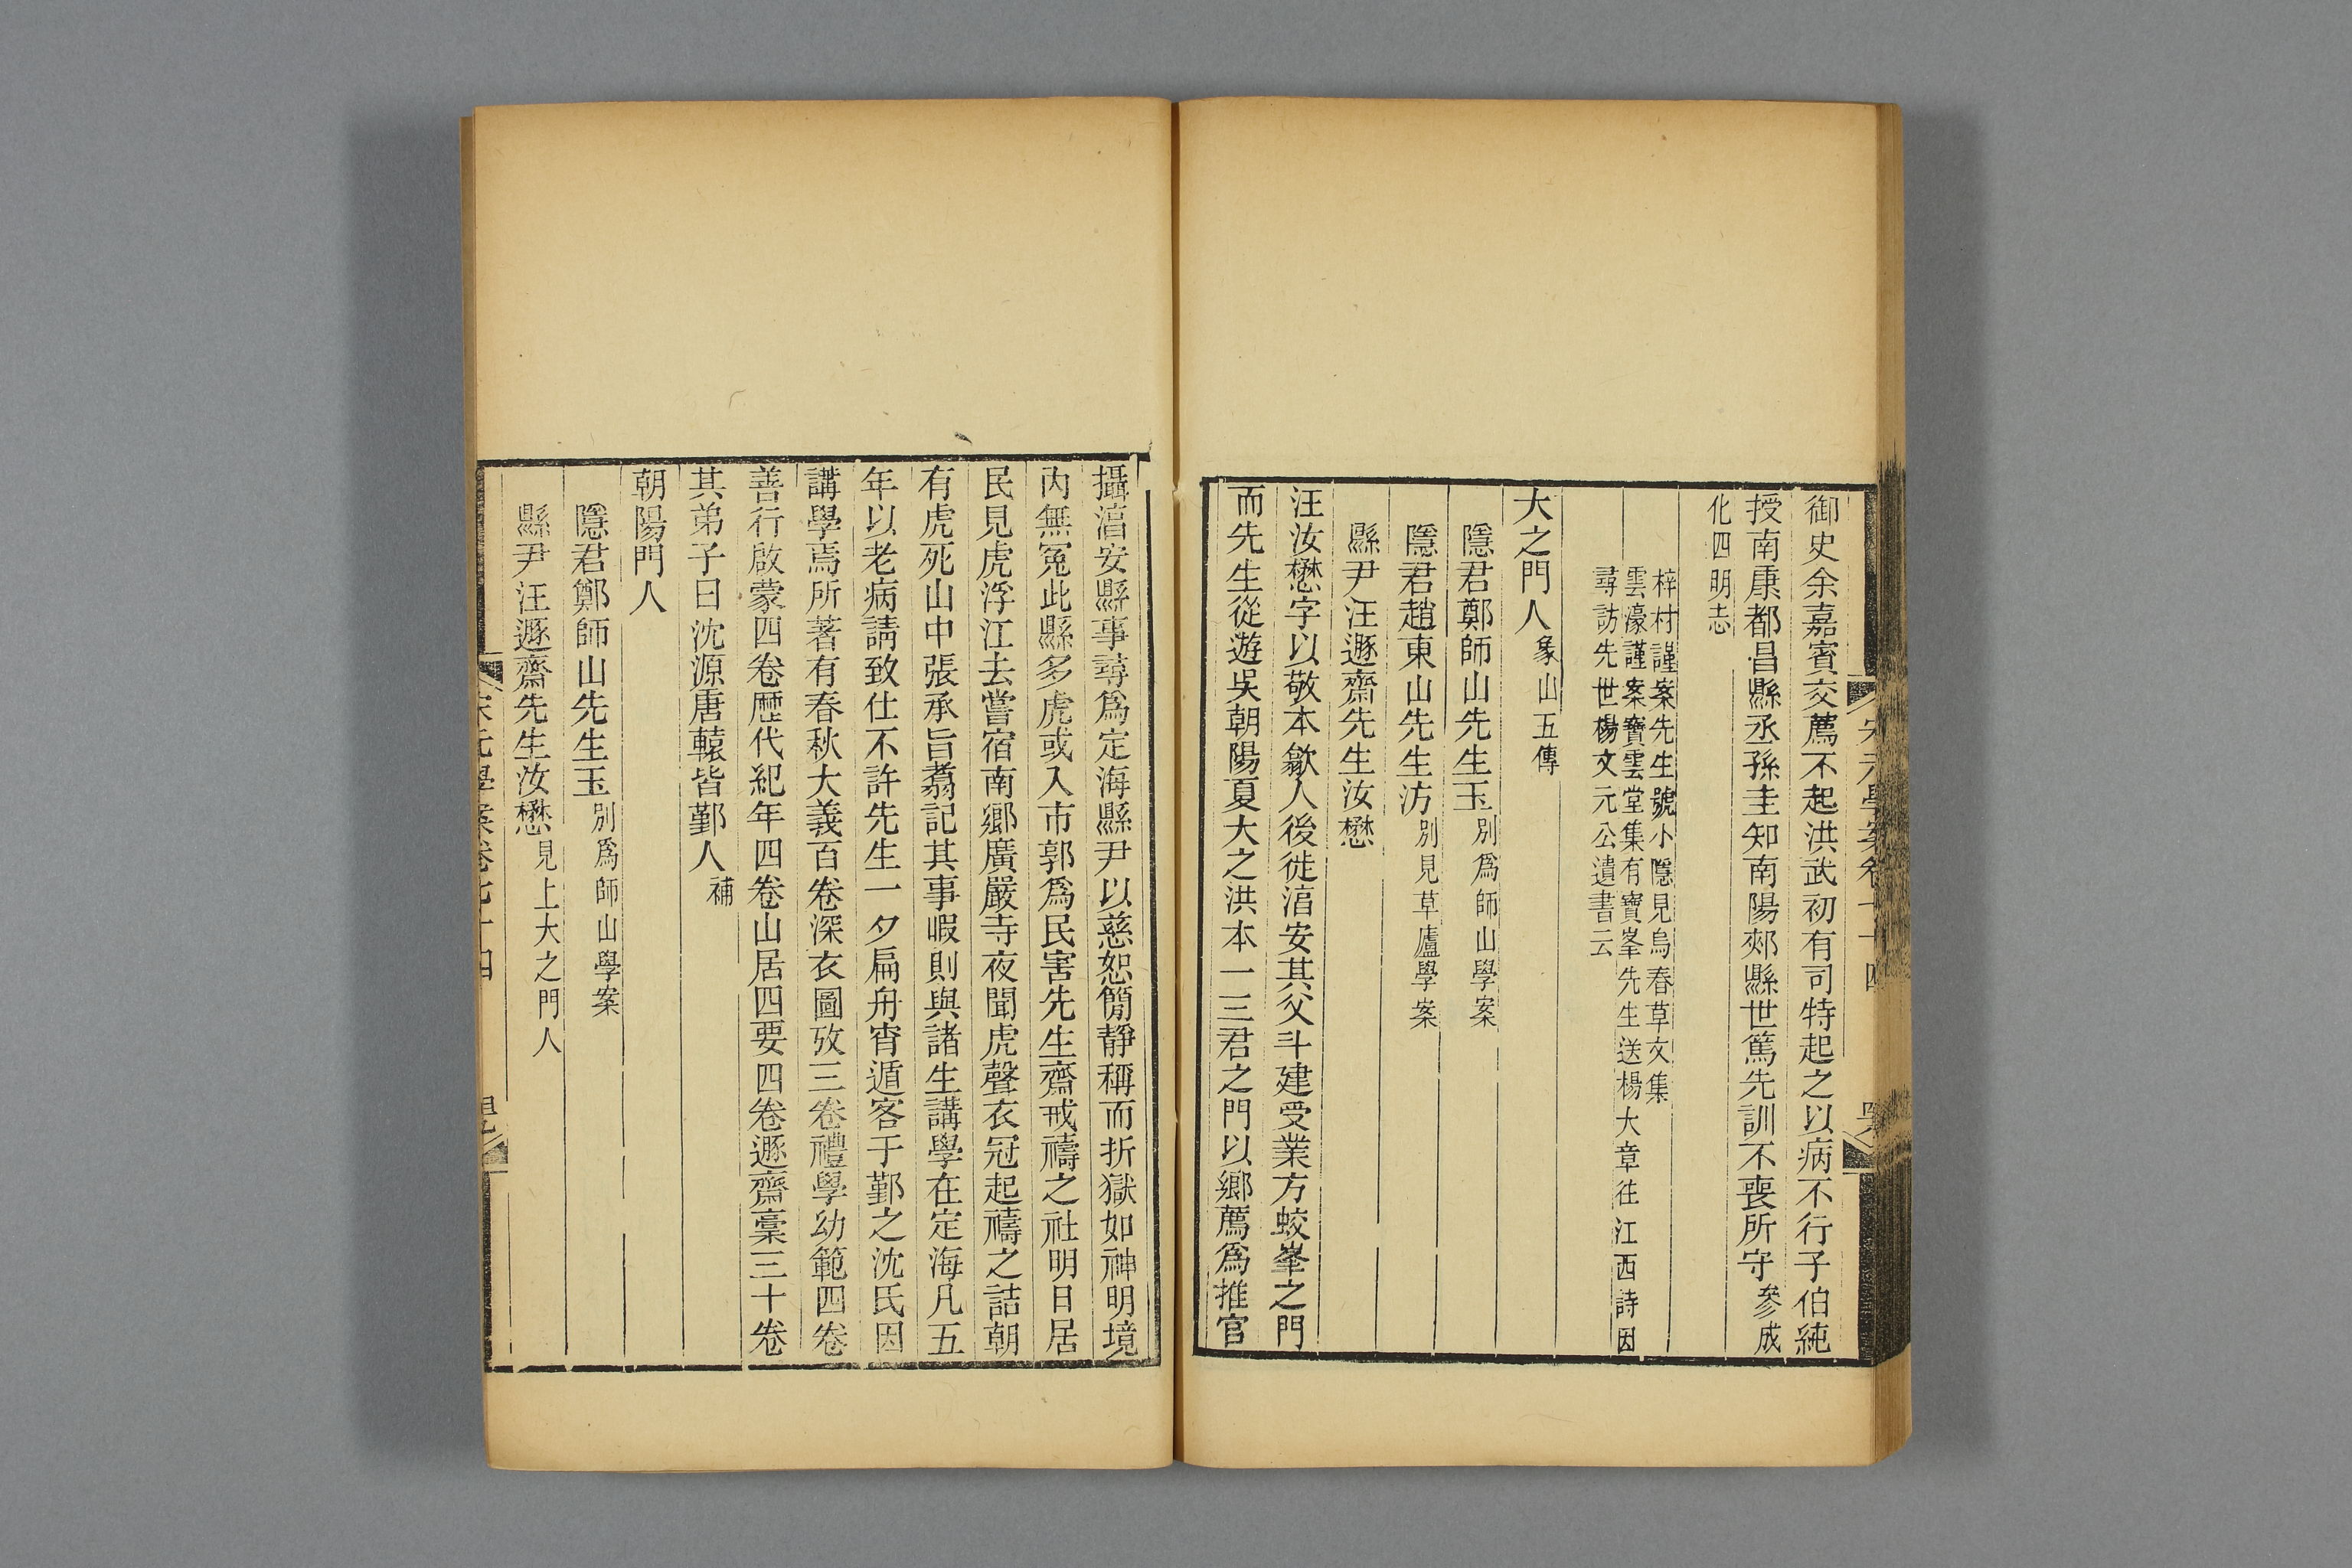 御史余嘉賓交薦不起洪武初有司特起之以病不行子伯純
授南康都昌縣丞孫圭知南陽郟縣世篤先訓不喪所守參成
化四明志
梓村謹案先生號小隱見烏春草文集
雲濠謹案寶雲堂集有寶峯先生送楊大章往江西詩因
尋訪先世楊文元公遺書云
大之門人象山五傳
隱君鄭師山先生玉別爲師山學案
隱君趙東山先生汸別見草廬學案
縣尹汪遯齋先生汝懋
汪汝懋字以敬本歙人後徙淳安其父斗建受業方蛟峯之門
而先生從遊吳朝陽夏大之洪本一三君之門以鄉薦爲推官
攝淳安縣事尋爲定海縣尹以慈恕簡靜稱而折獄如神明境
內無冤此縣多虎或入市郭爲民害先生齋戒禱之社明日居
民見虎浮江去嘗宿南鄉廣嚴寺夜聞虎聲衣冠起禱之詰朝
有虎死山中張承旨翥記其事暇則與諸生講學在定海凡五
年以老病請致仕不許先生一夕扁舟宵遁客于鄞之沈氏因
講學焉所著有春秋大義百卷深衣圖攷三卷禮學幼範四卷
善行啟蒙四卷歷代紀年四卷山居四要四卷遯齋稾三十卷
其弟子曰沈源唐轅皆鄞人補
朝陽門人
隱君鄭師山先生玉別爲師山學案
縣尹汪遯齋先生汝懋見上大之門人
宋元學案卷七十四